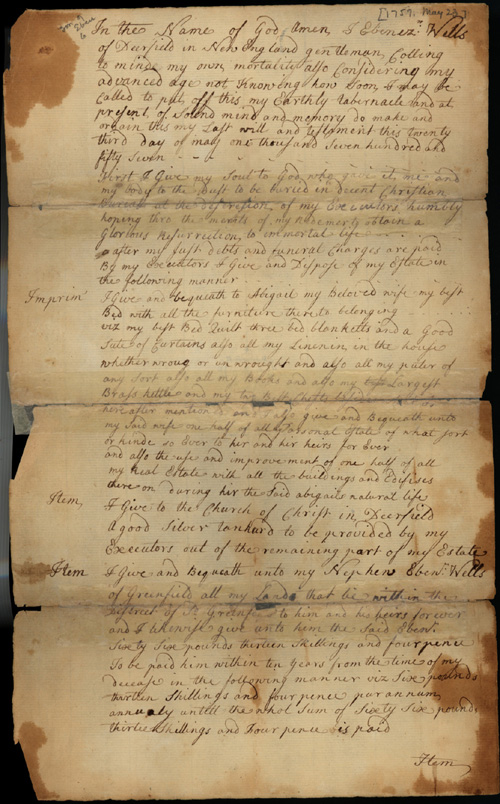 [1757. May 23]
In the Name of God Amen, I Ebenezr. Wells
of Deerfield in New England gentleman, Calling
to minde my own mortality also Considering my
advanced age not Knowing how Soon I may be
Called to put off this my Earthly tabernacle and at
present of Sound mind and memory do make and
ordain this my Last will and testament this Twenty
third day of may one thousand Seven hundred and
fifty Seven
First I Give my Soul to God who gave it me and
my body to the Dust to be buried in decent Christian
Buriel at the descression of my Executors humbly
hoping thro the merits of my redemer to obtain a
Glorious resurrection to immortal life
after my just debts and funeral Charges are paid
By my Executors I Give and Dispose of my Estate in
the following manner
Imprim
I Give and bequeath to Abigail my Beloved wife my best
Bed with all the furniture thereto belonging
viz my best Bed Quilt three bed blanketts and a Good
Sute of Curtains also all my Linnin in the house
whether wroug or un wrought and also all my puter of
any Sort also all my Books and also my Largest
Brass kettle and my two
hereafter mention and I also give and Bequeath unto
my Said wife one half of all personal Estate of what sort
or kinde so Ever to her and her heirs for Ever
and also the use and improvement of one half of all
my Real Estate with all the buildings and Edifises
there on during her the Said abigails natural life
Item,
I Give to the Church of Christ in Deerfield
A good Silver tankurd to be provided by my
Executors out of the remaining part of my Estate
Item
I Give and Bequeath unto my Nephew Ebenr. Wells
of Greenfield all my Lands that lie within the
District of Greenfd to him and he heirs forever
and I likewise give unto him the Said Ebenr.
Sixty Six pounds thirteen Shillings and four pence
To be paid him within ten years from the time of my
decease in the following manner viz Six pounds
thirteen Shillings and four pence pur annum,
annualy untill the whol Sum of Sixty Six pounds
thirteen Shillings and Four pence is paid
Item